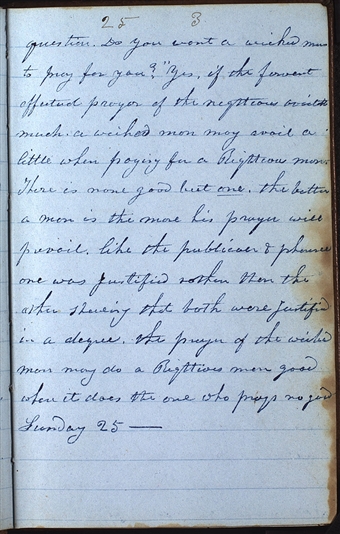 25 3
question. Do you want a wicked man
to pray for you? "Yes, if the fervent
effectual prayer of the righteous availeth
much. a wicked man may avail a
little when praying for a Righteous man.
There is none good but one. the better
a man is the more his prayer will
prevail. like the publican & pharisee
one was justified rather than the
other shewing that both were justified
in a degree. the prayer of the wicked
man may do a Righteous man good
when it does the one who prays no good
Sunday 25 —